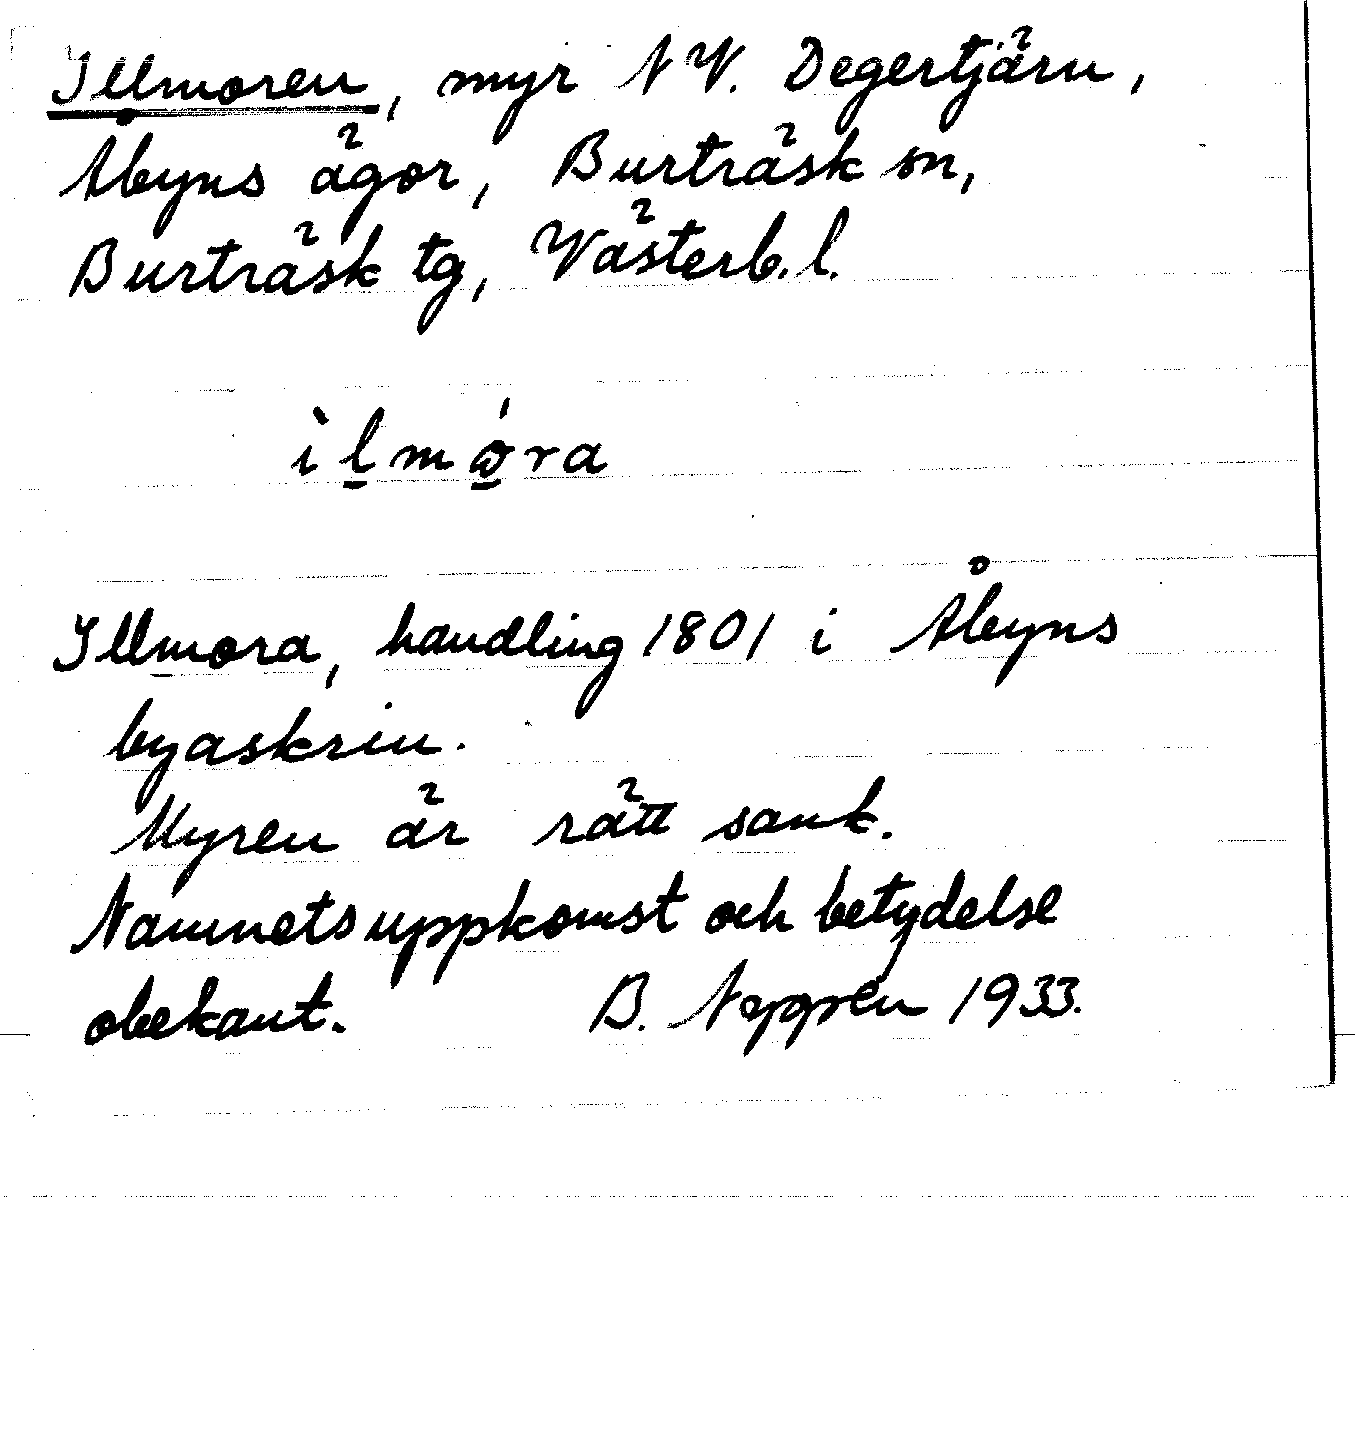 Illmoren, myr NV. Degertjärn,
Åbyns ägor, Burträsk sn,
Burträsk tg, Västerb. l.
ìlmǿra
Illmora, handling 1801 i Åbyns
byaskrin.
Myren är rätt sank.
Namnets uppkomst och betydelse
obekant. B. Nygren 1933.